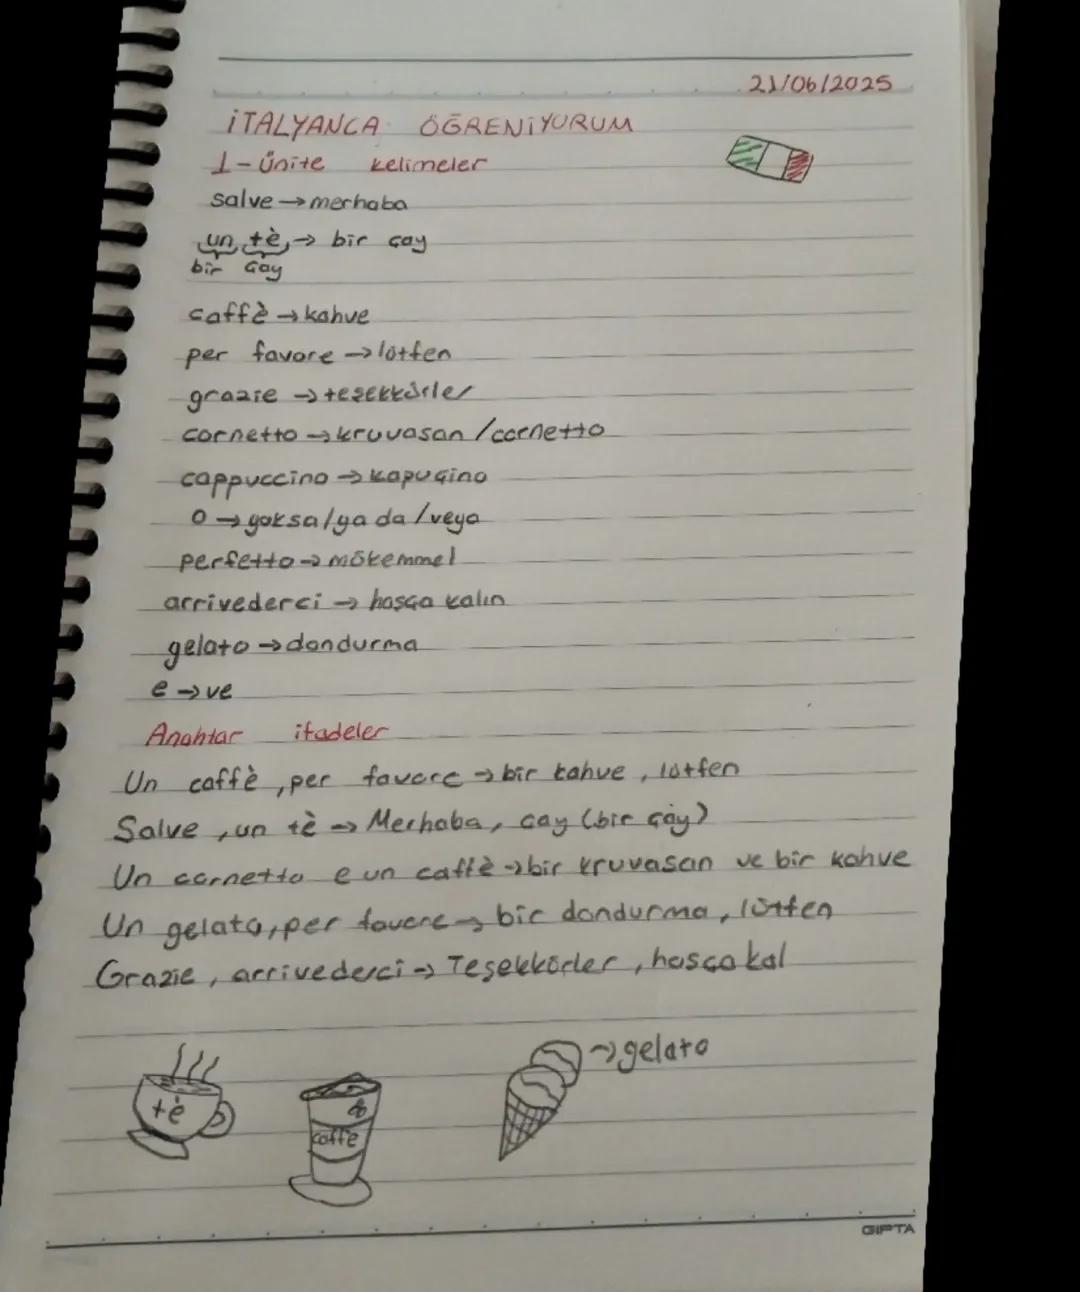 21/06/2025
İTALYANCA ÖĞRENİYORUM
1-ünite kelimeler
salve → merhaba
un tè → bir çay
bir çay
caffè → kahve
per favore → lütfen
grazie → teşekkürler
cornetto → kruvasan / cornetto
cappuccino → kapuçino
o → yoksa/ya da/veya
perfetto → mükemmel
arrivederci → hoşça kalın
gelato → dondurma
e → ve
Anahtar ifadeler
Un caffè, per favore → bir kahve, lütfen
Salve, un tè → Merhaba, çay (bir çay)
Un cornetto e un caffè → bir kruvasan ve bir kahve
Un gelato, per favore → bir dondurma, lütfen
Grazie, arrivederci → Teşekkürler, hoşça kal
→ gelato
tè
caffè
GIPTA